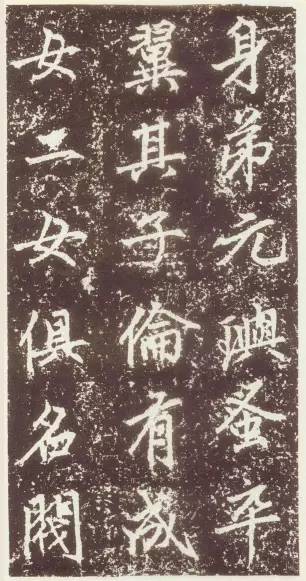 身弟元興蚤卒
翼其子倫有成
女二女俱名閥